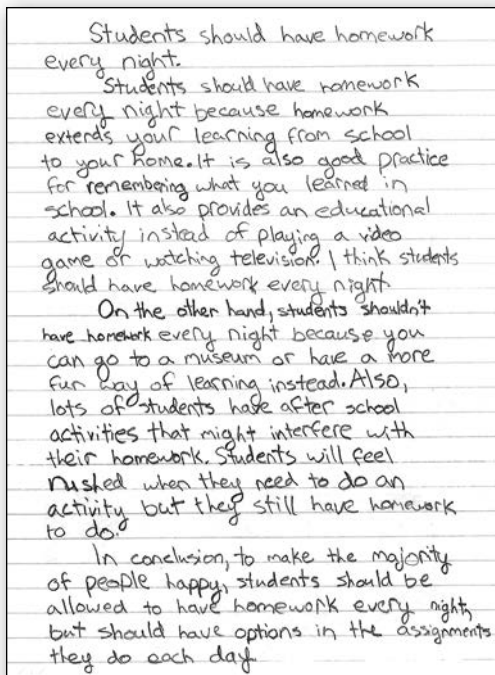 Students should have homework
every night.
Students should have homework
every night because homework
extends your learning from school
to your home. It is also good practice
for remembering what you learned in
school. It also provides an educational
activity instead of playing a video
game or watching television. I think students
should have homework every night.
On the other hand, students shouldn't
have homework every night because you
can go to a museum or have a more
fun way of learning instead. Also,
lots of students have after school
activities that might interfere with
their homework. Students will feel
rushed when they need to do an
activity but they still have homework
to do.
In conclusion, to make the majority
of people happy, students should be
allowed to have homework every night,
but should have options in the assignments
they do each day.